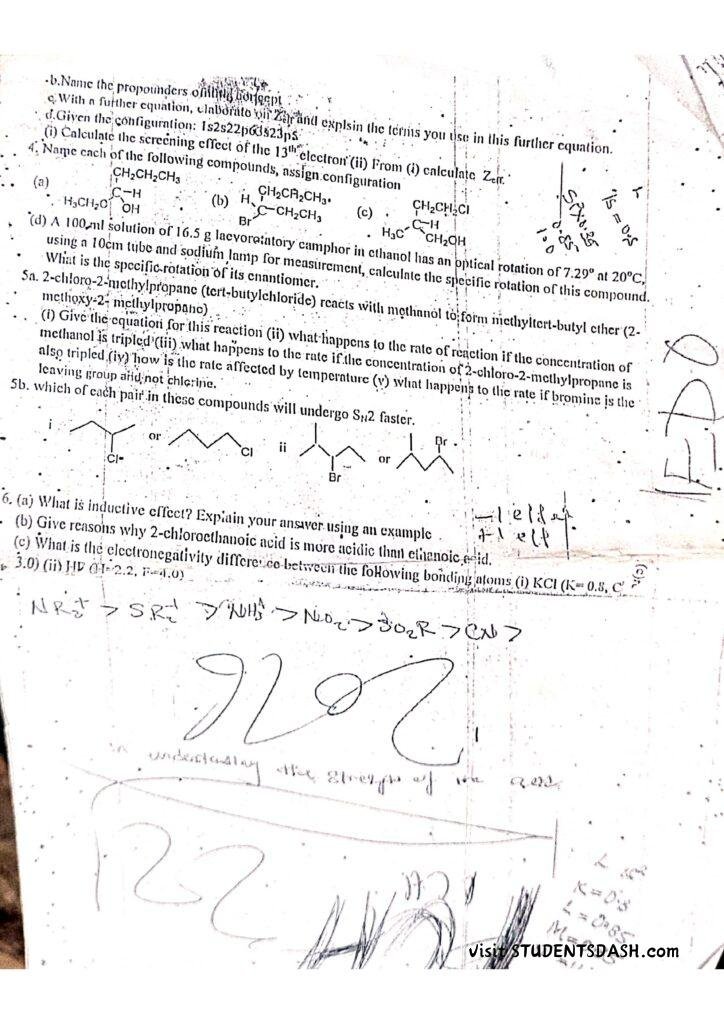 b.Name the propounders of this concept
c.With a further equation, elaborate on Zeff and explain the terms you use in this further equation.
d.Given the configuration: 1s2s22p63s23p5
(i) Calculate the screening effect of the 13th electron (ii) From (i) calculate Zeff.
4. Name each of the following compounds, assign configuration
(a) CH2CH2CH3 C-H H3CH2C OH
(b) CH2CH2CH3. H C-CH2CH3 Br
(c) CH2CH2Cl C-H H3C CH2OH
(d) A 100 ml solution of 16.5 g laevorotatory camphor in ethanol has an optical rotation of 7.29° at 20°C,
using a 10cm tube and sodium lamp for measurement, calculate the specific rotation of this compound.
What is the specific rotation of its enantiomer.
5a. 2-chloro-2-methylpropane (tert-butylchloride) reacts with methanol to form methyltert-butyl ether (2-
methoxy-2- methylpropane)
(i) Give the equation for this reaction (ii) what happens to the rate of reaction if the concentration of
methanol is tripled (iii) what happens to the rate if the concentration of 2-chloro-2-methylpropane is
also tripled (iv) how is the rate affected by temperature (v) what happens to the rate if bromine is the
leaving group and not chlorine.
5b. which of each pair in these compounds will undergo SN2 faster.
i Cl or Cl ii Br or Br
6. (a) What is inductive effect? Explain your answer using an example
(b) Give reasons why 2-chloroethanoic acid is more acidic than ethanoic acid.
(c) What is the electronegativity difference between the following bonding atoms (i) KCl (K= 0.8, Cl=
3.0) (ii) HF (H=2.2, F=4.0)
-I effect
+I eff
NR3+ > SR2+ > NH3+ > NO2 > SO2R > CN >
in understanding the strength of
K=0.8
L=0.85
visit STUDENTSDASH.com